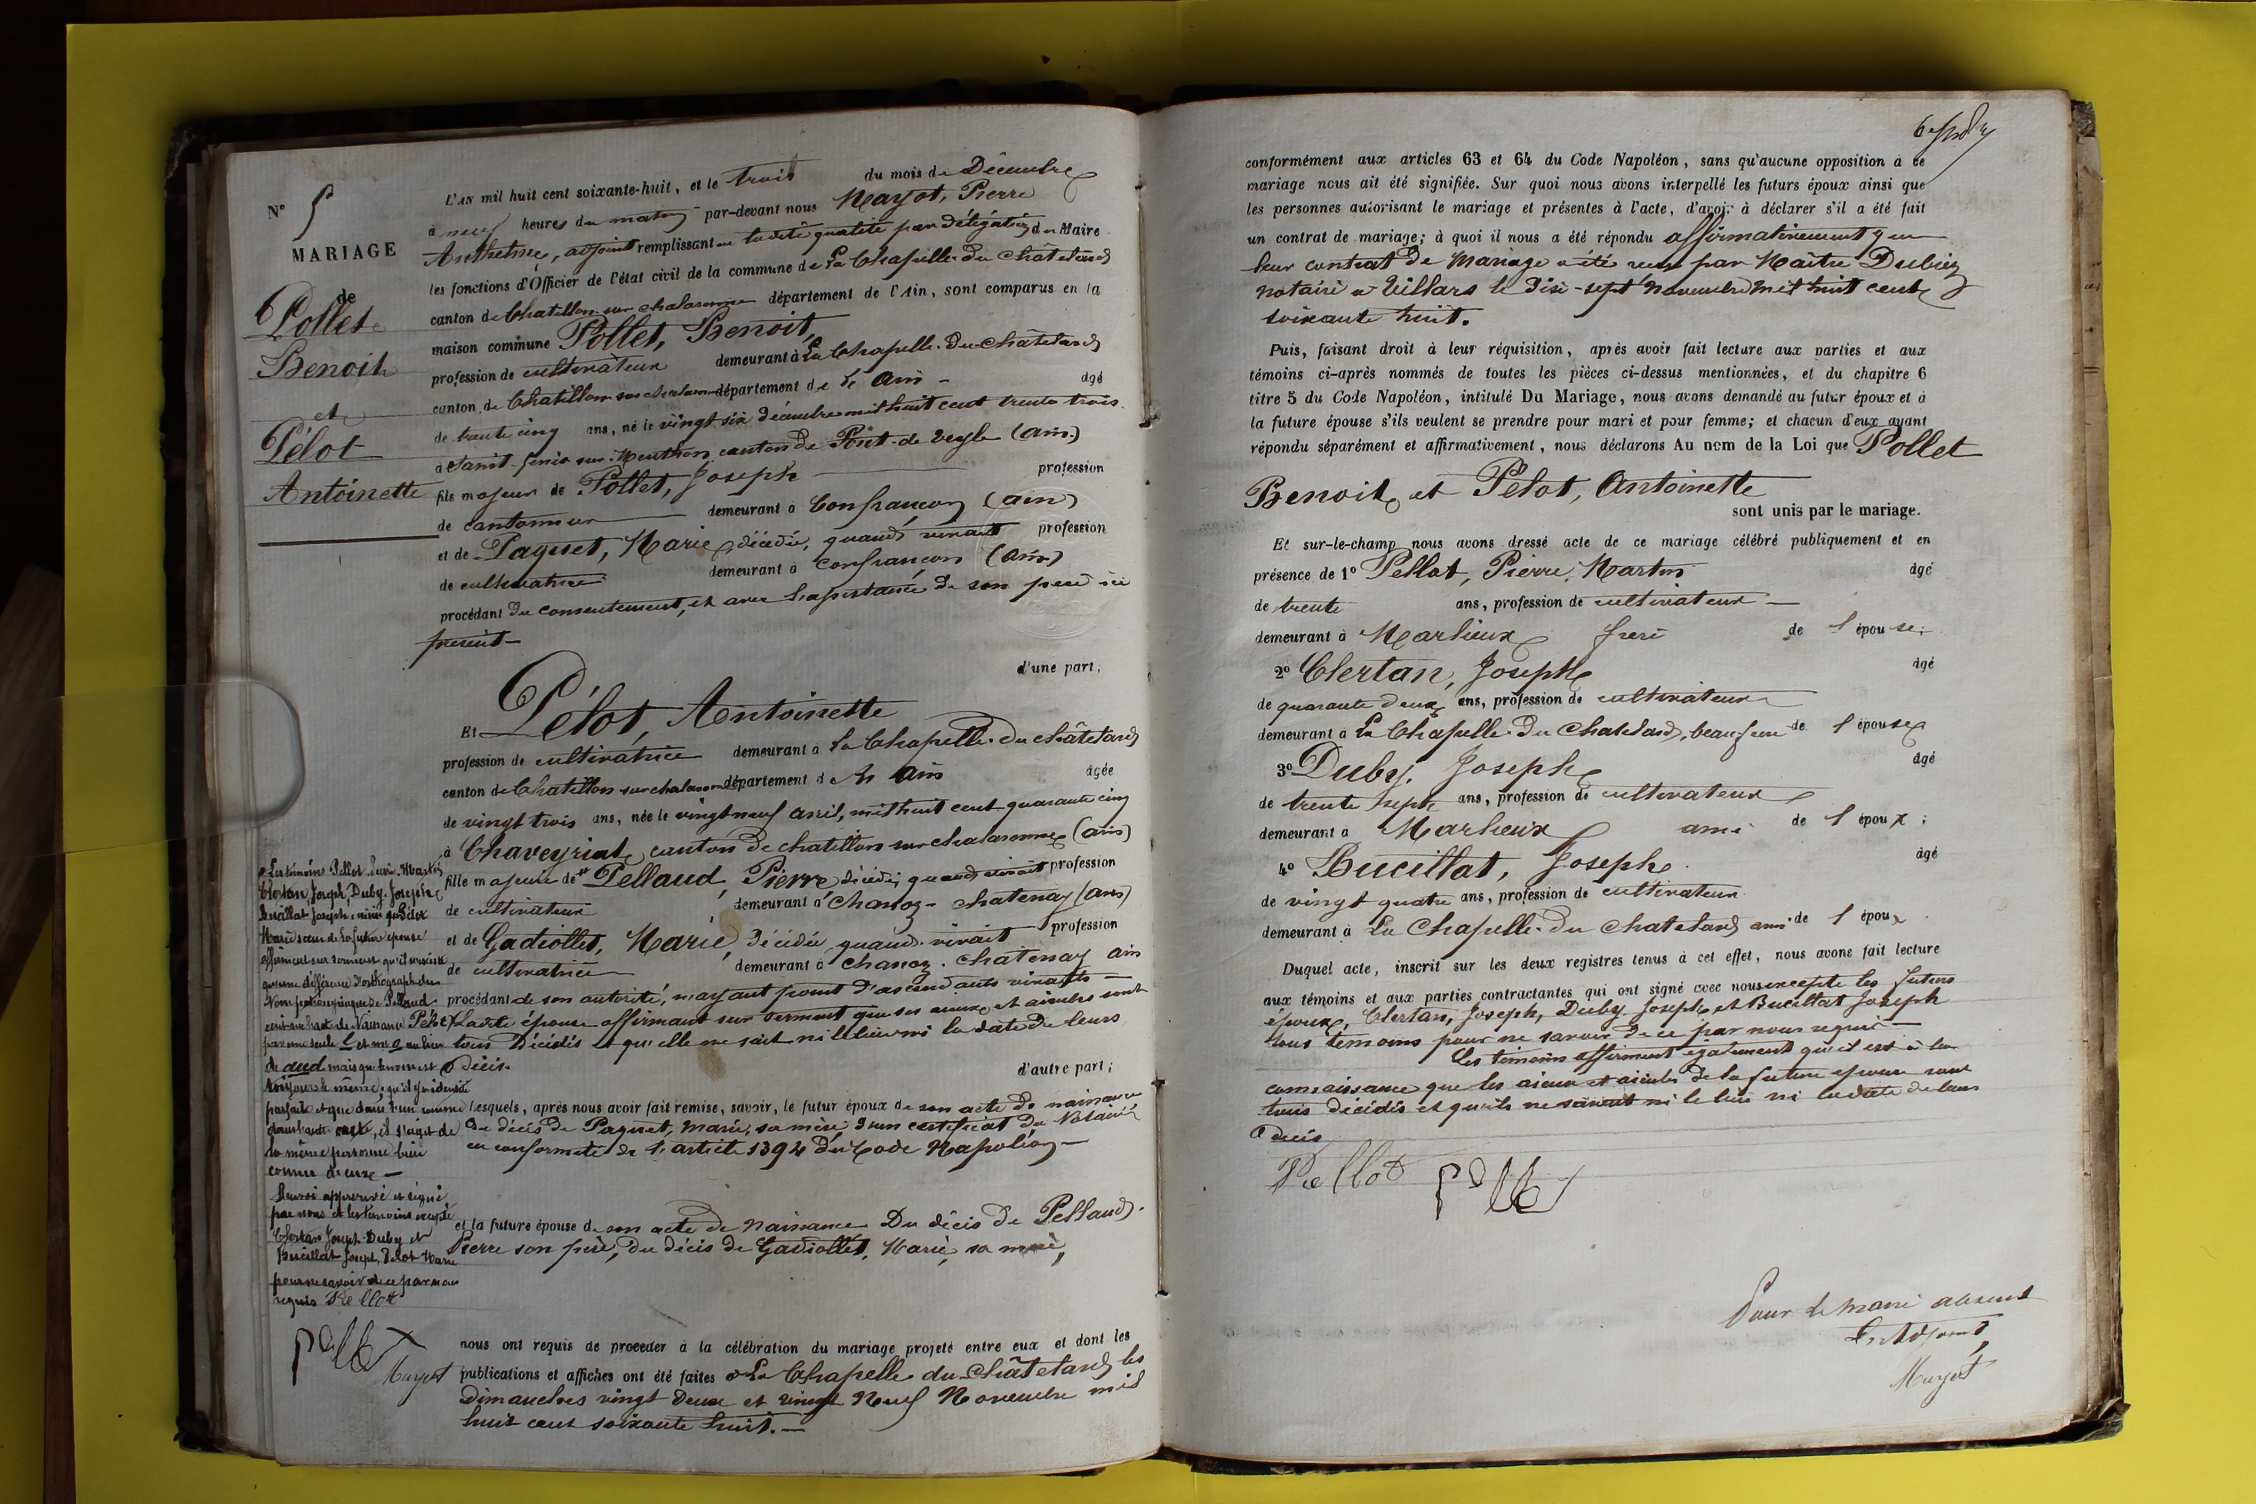 N° 5
MARIAGE
de
Pollet
Benoit
et
Pélot
Antoinette
L'AN mil huit cent soixante-huit, et le trois du mois de Décembre
à neuf heures du matin par-devant nous Mayot, Pierre
Anthelme, adjoint remplissant en ladite qualité par délégation du Maire
les fonctions d'Officier de l'état civil de la commune de La Chapelle-du-Châtelard
canton de Chatillon-sur-chalaronne département de l'Ain, sont comparus en la
maison commune Pollet, Benoit,
profession de cultivateur demeurant à La Chapelle-du-Châtelard
canton de Chatillon-sur-chalaronne département de l'Ain âgé
de trente cinq ans, né le vingt six décembre mil huit cent trente trois
à Saint-Genis-sur-Menthon canton de Pont-de-Veyle (ain.)
fils majeur de Pollet, Joseph profession
de cantonnier demeurant à Confrançon (ain)
et de Paquet, Marie, décédée, quand vivait profession
de cultivatrice demeurant à confrancon (ain)
procédant du consentement, et avec l'assistance de son père ici
présent
d'une part,
Et Pélot, Antoinette
profession de cultivatrice demeurant à La Chapelle-du-Châtelard
canton de Chatillon-sur-chalaronne département de l'ain âgée
de vingt trois ans, née le vingt neuf avril, mil huit cent quarante cinq
à Chaveyriat, canton de chatillon-sur-chalaronne (ain)
fille majeure de Pellaud, Pierre, décédé, quand vivait profession
de cultivateur demeurant à Chanoz-chatenay (ain)
et de Gadiollet, Marie, décédée, quand vivait profession
de cultivatrice demeurant à chanoz-chatenay ain
procédant de son autorité, n'ayant point d'ascendants vivants
Ladite épouse affirmant sur serment que ses aieux et aieules sont
tous décédés et qu'elle ne sait ni le lieu ni la date de leurs
décès.
d'autre part;
Lesquels, après nous avoir fait remise, savoir, le futur époux de son acte de naissance
de décès de Paquet, Marie, sa mère d'un certificat du Notaire
en conformité de l'article 1394 du Code Napoléon
et la future épouse de son acte de naissance Du décès de Pellaud
Pierre son père, du décès de Gadiollet, Marie, sa mère,
nous ont requis de procéder à la célébration du mariage projeté entre eux et dont les
publications et affiches ont été faites à La Chapelle du Châtelard les
Dimanches vingt Deux et vingt Neuf Novembre mil
huit cent soixante huit.
Les témoins Pellot Pierre Martin
Clertan, Joseph, Duby, Joseph
Bucillat Joseph, ainsi que Pélot
Marie sœur de la future épouse
affirment sur serment qu'il existe
une différence d'orthographe du
Nom patronymique de Pellaud
Pélot
par une seule l et un o au lieu
de aud mais que
toujours le même, qu'il y a identité
parfaite et que dans l'un comme
dans l'autre cas, il s'agit de
la même personne bien
connue d'eux
Renvoi approuvé et signé
par nous et les témoins excepté
Clertan Joseph Duby et
Bucillat Joseph, Pelot Marie
pour ne savoir de ce par nous
requis Pellot
Pollet
Mayot
conformément aux articles 63 et 64 du Code Napoléon, sans qu'aucune opposition à ce
mariage nous ait été signifiée. Sur quoi nous avons interpellé les futurs époux ainsi que
les personnes autorisant le mariage et présentes à l'acte, d'avoir à déclarer s'il a été fait
un contrat de mariage; à quoi il nous a été répondu affirmativement que
leur contrat de Mariage a été reçu par Maître Dubiez
notaire à Villars le Dix-sept novembre mil huit cent
soixante huit.
Puis, faisant droit à leur réquisition, après avoir fait lecture aux parties et aux
témoins ci-après nommés de toutes les pièces ci-dessus mentionnées, et du chapitre 6
titre 5 du Code Napoléon, intitulé Du Mariage, nous avons demandé au futur époux et à
la future épouse s'ils veulent se prendre pour mari et pour femme; et chacun d'eux ayant
répondu séparément et affirmativement, nous déclarons Au nom de la Loi que Pollet
Benoit et Pelot, Antoinette
sont unis par le mariage.
Et sur-le-champ nous avons dressé acte de ce mariage célébré publiquement et en
présence de 1° Pellot, Pierre, Martin âgé
de trente ans, profession de cultivateur
demeurant à Marlieux frere de l'épouse;
2° Clertan, Joseph âgé
de quarante deux ans, profession de cultivateur
demeurant à La Chapelle-du-Chatelard, beau frere de l'épouse
3° Duby, Joseph âgé
de trente sept ans, profession de cultivateur
demeurant à Marlieux ami de l'époux;
4° Bucillat, Joseph âgé
de vingt quatre ans, profession de cultivateur
demeurant à La Chapelle-du-Chatelard ami de l'époux.
Duquel acte, inscrit sur les deux registres tenus à cet effet, nous avons fait lecture
aux témoins et aux parties contractantes qui ont signé avec nous excepté les futurs
époux, Clertan, Joseph, Duby, Joseph et Bucillat Joseph
tous témoins pour ne savoir de ce par nous requis
Les témoins affirment également qu'il est à leur
connaissance que les aieux et aieules de la future epouse sont
tous décédés et qu'ils ne savent ni le lieu ni la date de leurs
décès
Pellot Pollet
Pour le maire absent
L'Adjoint,
Mayot